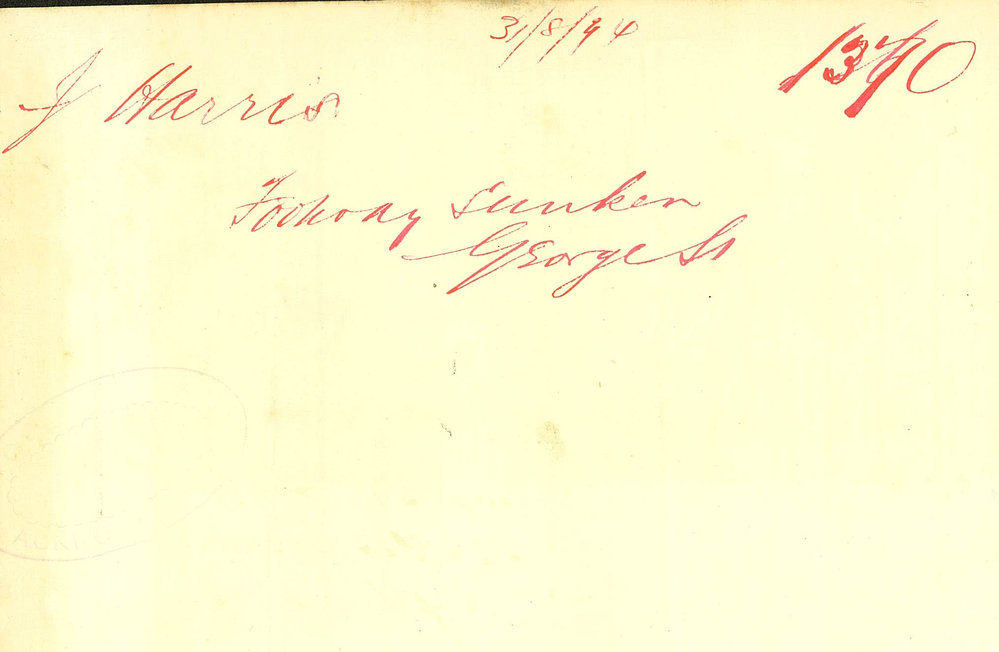 31/8/94
J Harris
Footway sunken
George St